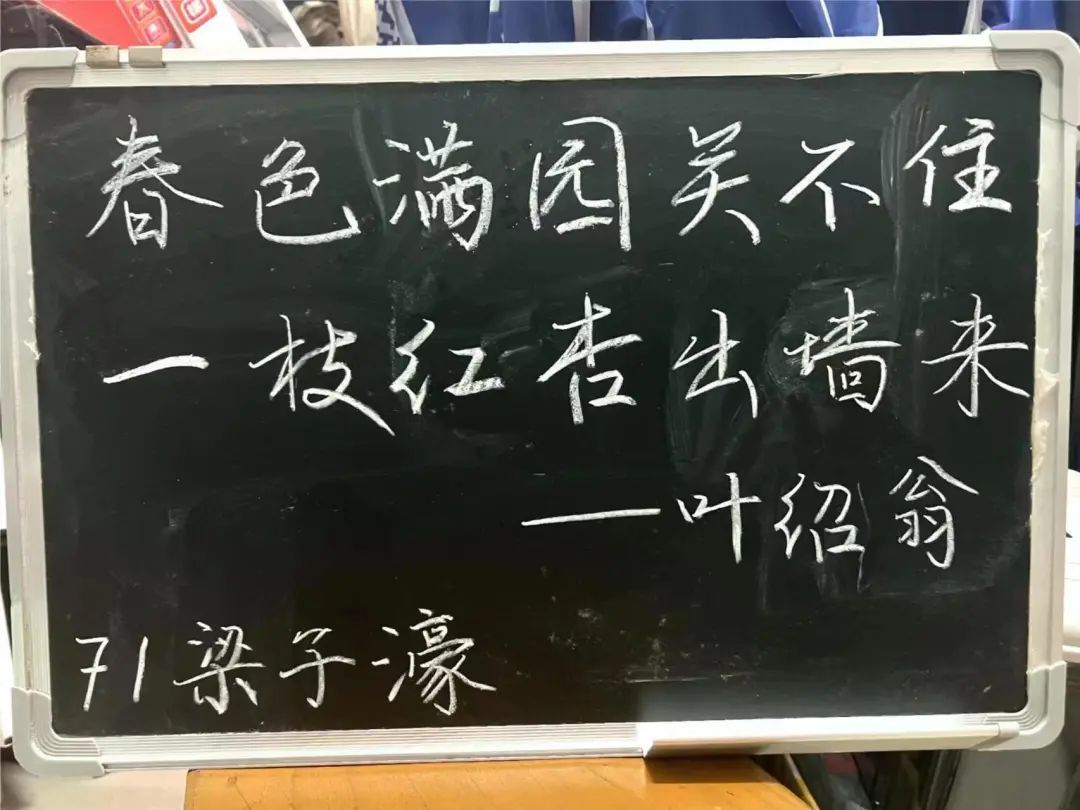 春色满园关不住
一枝红杏出墙来
—叶绍翁
71梁子濠